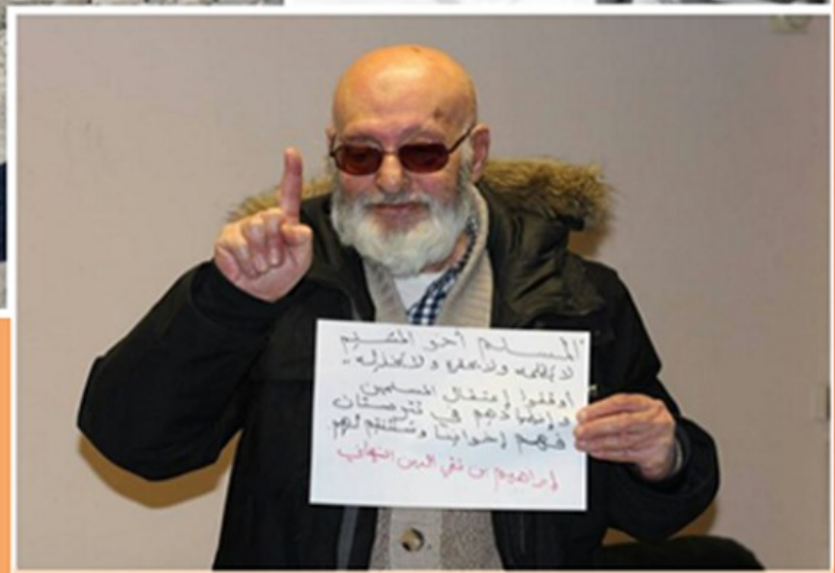 "المسلم أخو المسلم
لا يظلمه ولا يحقره ولا يخذله..
أوقفوا إعتقال المسلمين
وإضطهادهم في تترستان
فهم إخواننا وسننتقم لهم
إبراهيم بن تقي الدين النبهاني